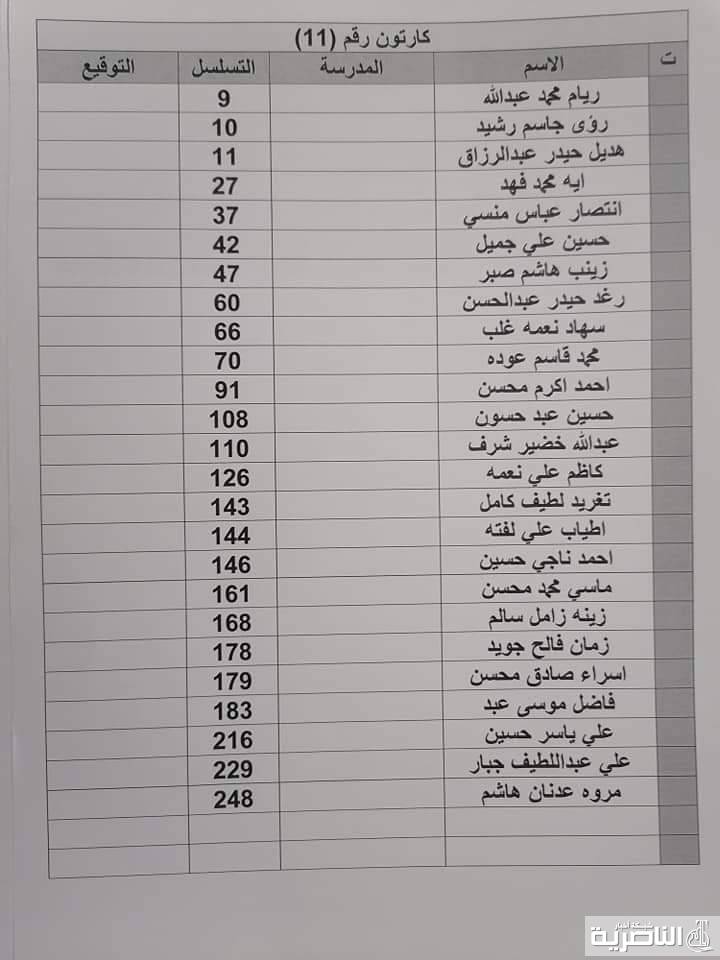 كارتون رقم (11)
ت الاسم المدرسة التسلسل التوقيع
ريام محمد عبدالله 9
رؤى جاسم رشيد 10
هديل حيدر عبدالرزاق 11
ايه محمد فهد 27
انتصار عباس منسي 37
حسين علي جميل 42
زينب هاشم صبر 47
رغد حيدر عبدالحسن 60
سهاد نعمه غلب 66
محمد قاسم عوده 70
احمد اكرم محسن 91
حسين عبد حسون 108
عبدالله خضير شرف 110
كاظم علي نعمه 126
تغريد لطيف كامل 143
اطياب علي لفته 144
احمد ناجي حسين 146
ماسي محمد محسن 161
زينه زامل سالم 168
زمان فالح جويد 178
اسراء صادق محسن 179
فاضل موسى عبد 183
علي ياسر حسين 216
علي عبداللطيف جبار 229
مروه عدنان هاشم 248
شبكة اخبار
الناصرية